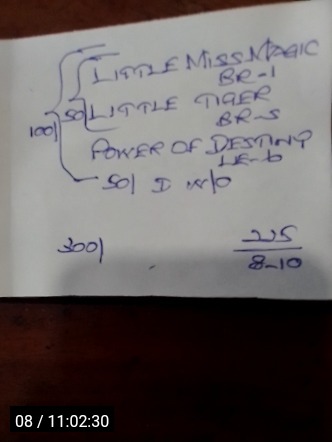 LITTLE MISS MAGIC
BR-1
100/ 50/ LITTLE TIGER
BR-5
POWER OF DESTINY
LE-6
50/ D W/O
300/ 225
8-10
08 / 11:02:30